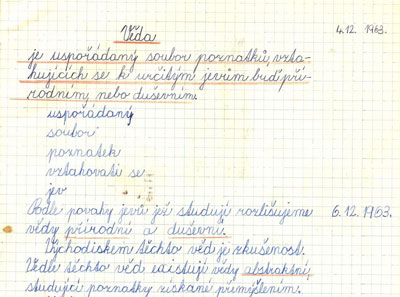 Věda 4.12. 1963.
je uspořádaný soubor poznatků, vzta-
hujících se k určitým jevům buď pří-
rodním, nebo duševním.
uspořádaný
soubor
poznatek
vztahovati se
jev
Podle povahy jevů jež studují rozlišujeme 6.12. 1963.
vědy přírodní a duševní.
Východiskem těchto věd je zkušenost.
Vedle těchto věd existují vědy abstraktní,
studující poznatky získané přemýšlením.